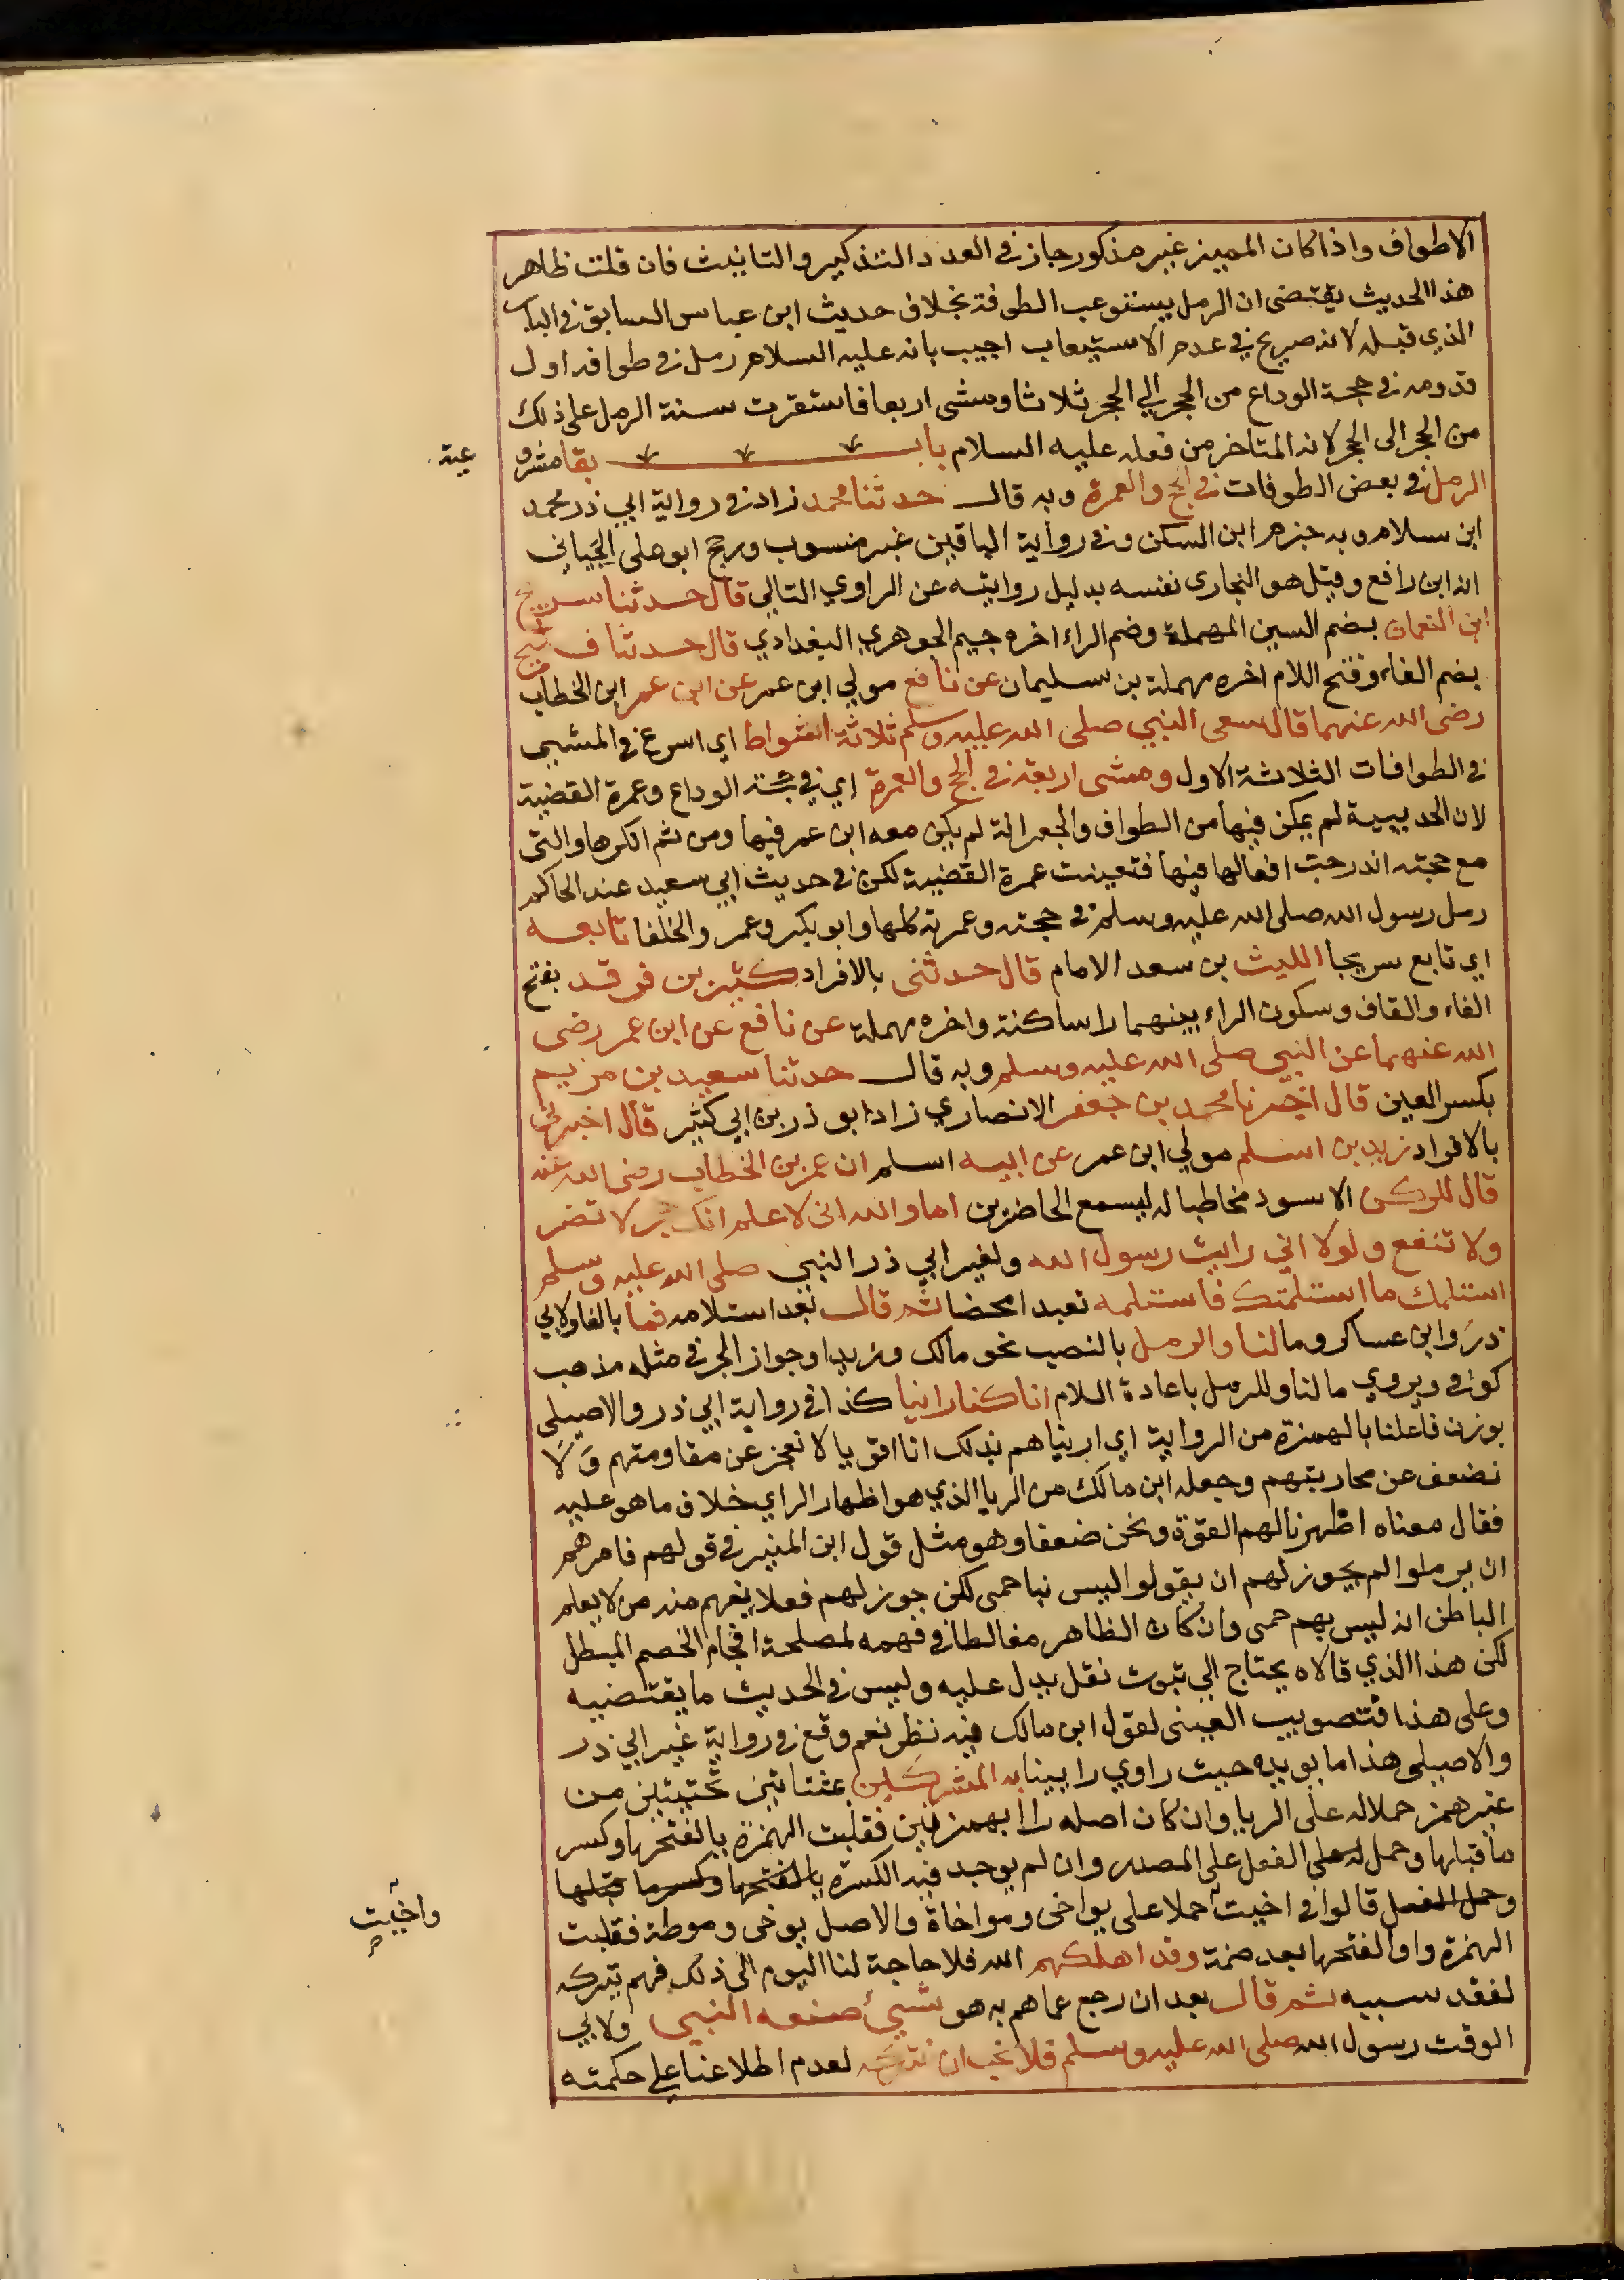 الاطواف واذا كان المميز غير مذكور جاز في العدد التذكير والتانيث فان قلت ظاهر
هذا الحديث يقتضى ان الرمل يستوعب الطوفة بخلاف حديث ابن عباس السابق في الباب
الذي قبله لانه صريح في عدم الاستيعاب اجيب بانه عليه السلام رمل في طوافه اول
قدومه في حجة الوداع من الحجر الي الحجر ثلاثا ومشى اربعا فاستقرت سنة الرمل على ذلك
من الحجر الى الحجر لانه المتاخر من فعله عليه السلام باب بقا مشرو
عية
الرمل في بعض الطوفات في الحج والعمرة وبه قال حدثنا محمد زاد في رواية ابي ذر محمد
ابن سلام وبه جزم ابن السكن وفي رواية الباقين غير منسوب ورجح ابو على الجياني
انه ابن رافع وقيل هو البخارى نفسه بدليل روايته عن الراوي التالي قال حدثنا سريج
ابن النعمان بضم السين المهملة وضم الراء اخره جيم الجوهري البغدادي قال حدثنا فليح
بضم الفاء وفتح اللام اخره مهملة بن سليمان عن نافع مولي ابن عمر عن ابن عمر ابن الخطاب
رضى الله عنهما قال سعى النبي صلى الله عليه وسلم ثلاثة اشواط اي اسرع في المشيى
في الطوافات الثلاثة الاول ومشى اربعة في الحج والعمرة اي في حجة الوداع وعمرة القضية
لان الحديبية لم يمكن فيها من الطواف والجعرانة لم يكن معه ابن عمر فيها ومن ثم انكرها والتى
مع حجته اندرجت افعالها فيها فتعينت عمرة القضية لكن في حديث ابي سعيد عند الحاكم
رمل رسول الله صلى الله عليه وسلم في حجته وعمرته كلها وابو بكر وعمر والخلفا تابعه
اي تابع سريجا الليث بن سعد الامام قال حدثنى بالافراد كثير بن فرقد بفتح
الفاء والقاف وسكون الراء بينهما را ساكنة واخره مهملة عن نافع عن ابن عمر رضى
الله عنهما عن النبي صلى الله عليه وسلم وبه قال حدثنا سعيد بن مريم
بكسر العين قال اخبرنا محمد بن جعفر الانصاري زاد ابو ذر بن ابي كثير قال اخبرني
بالافراد زيد بن اسلم مولي ابن عمر عن ابيه اسلم ان عمر بن الخطاب رضى الله عنه
قال للركن الاسود مخاطبا له ليسمع الحاضرين اما والله انى لاعلم انك حجر لا تضر
ولا تنفع ولولا اني رايت رسول الله ولغير ابي ذر النبي صلى الله عليه وسلم
استلمك ما استلمتك فاستلمه تعبدا محضا ثم قال بعد استلامه فما بالفا ولابي
ذر وابن عساكر وما لنا والرمل بالنصب نحو مالك وزيدا وجواز الجر في مثله مذهب
كوفي ويروي ما لنا وللرمل باعادة اللام انا كنا رائيا كذا في رواية ابي ذر والاصيلى
بوزن فاعلنا بالهمزة من الرواية اي اريناهم بذلك انا اقويا لا نعجز عن مقاومتهم وَلَا
نضعف عن محاربتهم وجعله ابن مالك من الريا الذي هو اظهار الراي خلاف ما هو عليه
فقال معناه اظهرنا لهم القوة ونحن ضعفا وهو مثل قول ابن المنير في قولهم فامرهم
ان يرملوا لم يجوز لهم ان يقولوا ليس نبا حمى لكن جوز لهم فعلا يفهم منه من لا يعلم
الباطن انه ليس بهم حمى وان كان الظاهر مغالطا في فهمه لمصلحة افحام الخصم المبطل
لكن هذا الذي قالاه يحتاج الي ثبوت نقل يدل عليه وليس في الحديث ما يقتضيه
وعلى هذا فتصويب العينى لقول ابن مالك فيه نظر نعم وقع في رواية غير ابي ذر
والاصيلى هذا ما يويده حيث راوي رايينا به المشركين بمثناتين تحتيتين من
غير همز حملاله على الريا وان كان اصله راا بهمزتين فقلبت الهمزة يا لفتحها وكسر
ما قبلها وحمل له على الفعل على المصدر وان لم يوجد فيه الكسرة يا لفتحها وكسر ما قبلها
وحمل الفعل قالوا في اخيت حملا على يواخى ومواخاة والاصل يوخى وموطة فقلبت
واخيت
الهمزة واوا لفتحها بعد ضمة وقد اهلكهم الله فلا حاجة لنا اليوم الى ذلك فهم بتركه
لفقد سببه ثم قال بعد ان رجع عما هم به هو شيئ صنعه النبي ولابي
الوقت رسول الله صلى الله عليه وسلم فلا نحب ان نتركه لعدم اطلاعنا على حكمته